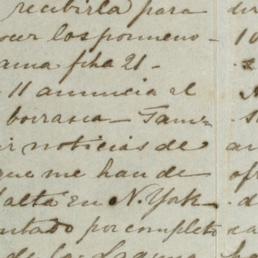 recibirla para
ocer los pormeno-
ama fha 21-
11 anuncia el
borrasca - Tam-
ir noticias de
que me han de
falta en N. York
ntado por completo
de la